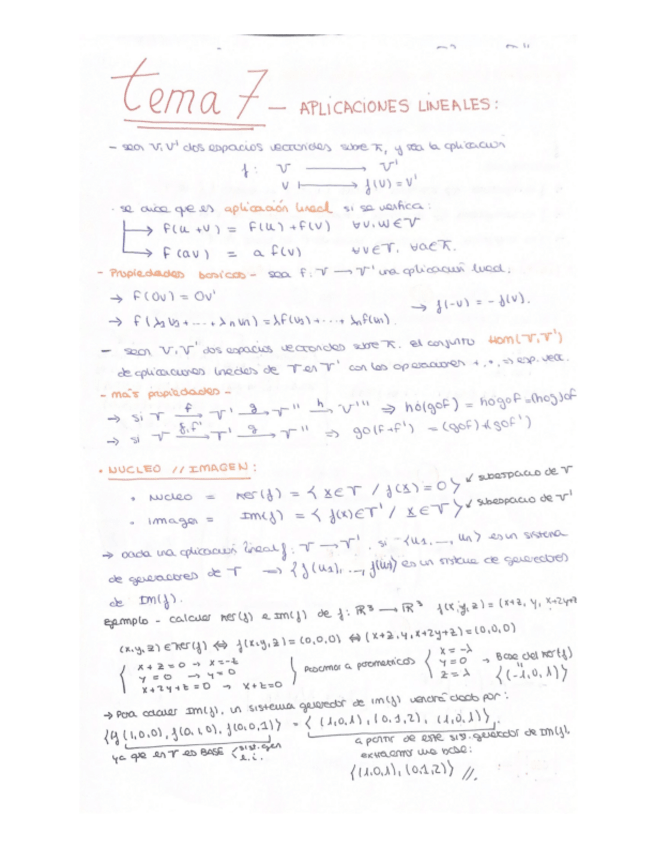 tema 7 - APLICACIONES LINEALES:
- sean V, V' dos espacios vectoriales sobre K, y sea la aplicación
f: V → V'
v ↦ f(v) = v'
· se dice que es aplicación lineal si se verifica:
→ f(u+v) = f(u) + f(v) ∀v,w ∈ V
→ f(av) = a f(v) ∀v ∈ V, ∀a ∈ K.
- Propiedades basicas - sea f: V → V' una aplicación lineal:
→ f(0v) = 0v' → f(-v) = -f(v).
→ f(λ1v1 + ... + λnvn) = λf(v1) + ... + λnf(vn).
- sean V, V' dos espacios vectoriales sobre K. el conjunto Hom(V,V')
de aplicaciones lineales de V en V' con las operaciones +, ·, => esp. vect.
- mas propiedades -
→ si V →f V' →g V'' →h V''' => ho(gof) = hogof = (hog)of
→ si V →f,f' V' →g V'' => go(f+f') = (gof)+(gof')
· NUCLEO // IMAGEN:
· Nucleo = Ker(f) = { x ∈ V / f(x) = 0 } ↙ subespacio de V
· imagen = Im(f) = { f(x) ∈ V' / x ∈ V } ↙ subespacio de V'
→ dada una aplicación lineal f: V → V'. si {u1, ..., un} es un sistema
de generadores de V => {f(u1), ..., f(un)} es un sistema de generadores
de Im(f).
Ejemplo - calcular Ker(f) e Im(f) de f: R³ → R³ f(x,y,z) = (x+z, y, x+2y+z
(x,y,z) ∈ Ker(f) <=> f(x,y,z) = (0,0,0) <=> (x+z, y, x+2y+z) = (0,0,0)
{ x+z=0 → x=-z } Pasamos a parametricas { x=-λ
y=0 → y=0 y=0 → Base del Ker(f)
x+2y+z=0 → x+z=0 z=λ {(-1,0,1)}
→ Para calcular Im(f), un sistema generador de im(f) vendrá dado por:
{f(1,0,0), f(0,1,0), f(0,0,1)} = {(1,0,1), (0,1,2), (1,0,1)}.
ya que en V es BASE < sis. gen a partir de este sis. generador de Im(f),
l.i. extraemos una base:
{(1,0,1), (0,1,2)} //.